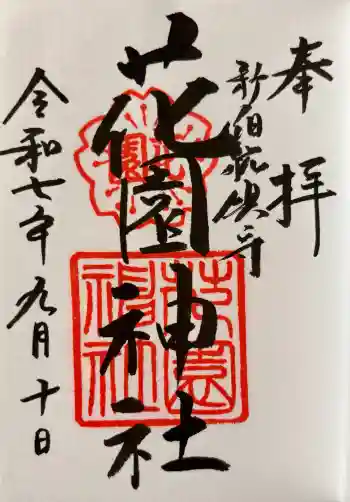 奉拝
新宿総鎮守
花園神社
令和七年九月十日
花園
神社